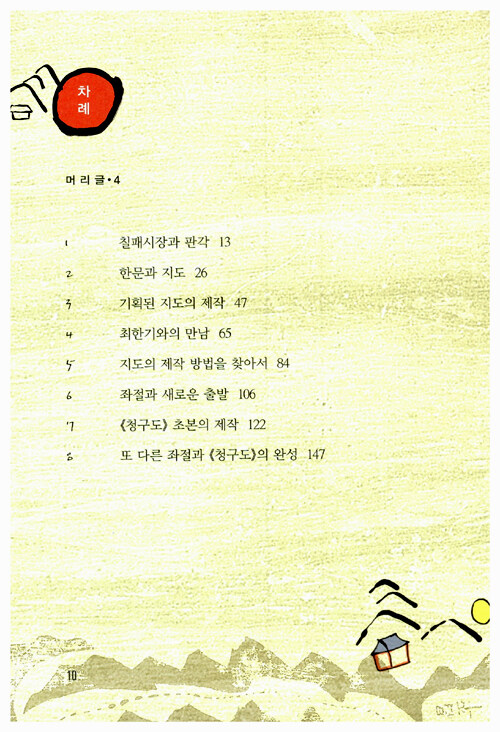 차
례
머리글 • 4
1 칠패시장과 판각 13
2 한문과 지도 26
3 기획된 지도의 제작 47
4 최한기와의 만남 65
5 지도의 제작 방법을 찾아서 84
6 좌절과 새로운 출발 106
7 《청구도》 초본의 제작 122
8 또 다른 좌절과 《청구도》의 완성 147
10